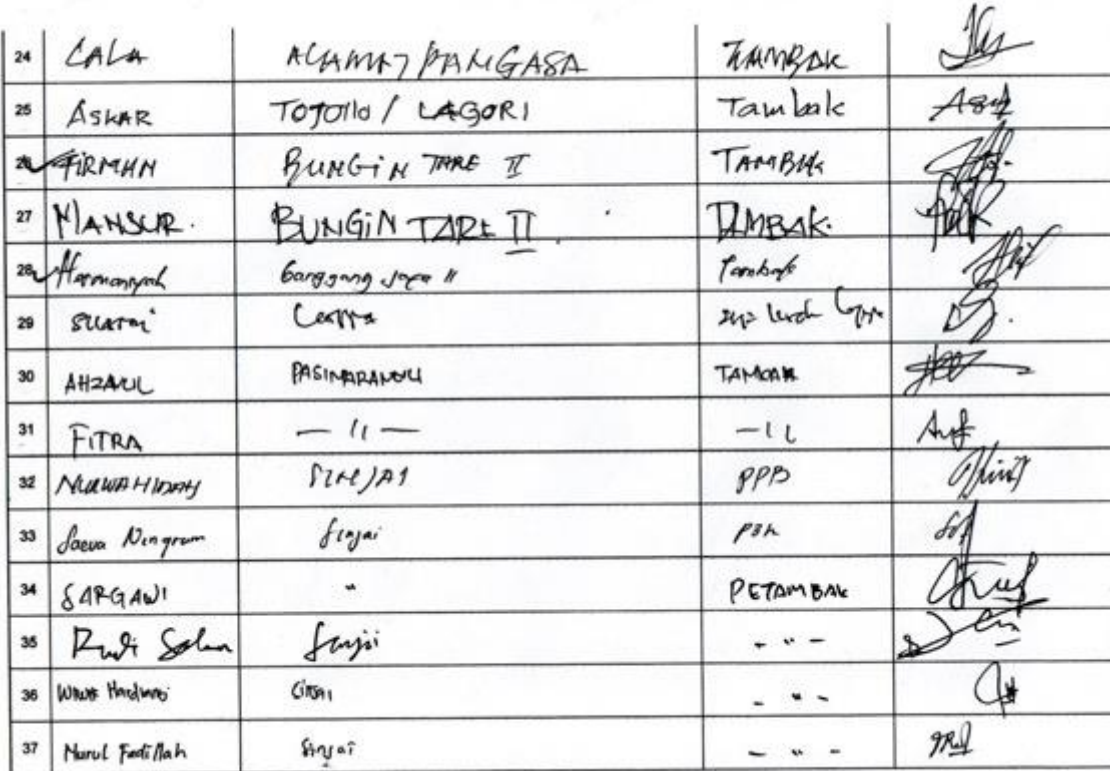 24 LALA ALAMAT PANGASA TAMBAK
25 ASKAR TOJOllo / LAGORI Tambak
26 FIRMAN BUNGIN TARE II TAMBAK
27 MANSUR. BUNGIN TARE II TAMBAK.
28 Hermansyah Ganggang Jaya II Tambak
29 Cappa
30 AHZANUL PASIMARANNU TAMBAK
31 FITRA — 11 — — 11
32 NURWAHIDAH SINJAI PPB
33 Ningrum Sinjai
34 SARGAWI " PETAMBAK
35 Rudi Salam Sinjai - " -
36 - " -
37 Nurul Fadillah Sinjai - " -